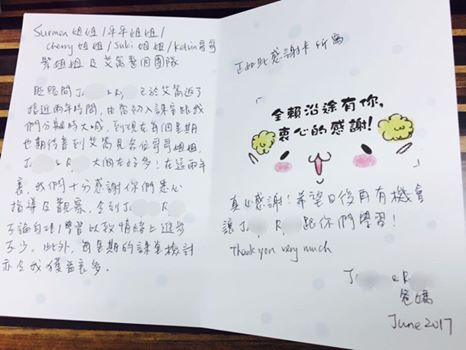 Surmon 姐姐/年年姐姐/
Cherry 姐姐/Suki 姐姐/Kelvin 哥哥
姐姐 及 艾高整個團隊
J R 已於艾高近了
接近兩年時間,由當初入課室
我們分離時大喊,到現在每個星期
也期待着到艾高見各位哥哥姐姐。
J R 大個左好多!在這兩年
裏,我們十分感謝你們悉心
指導及觀察,令到 J R
不論自理/學習以致情緒上進步
不少。此外,每星期的課堂檢討
亦令我獲益良多。
正如此感謝卡所寫
全賴沿途有你,
衷心的感謝!
真心感謝!希望日後再有機會
讓 J R 跟你們學習!
Thank you very much
J & R
爸媽
June 2017